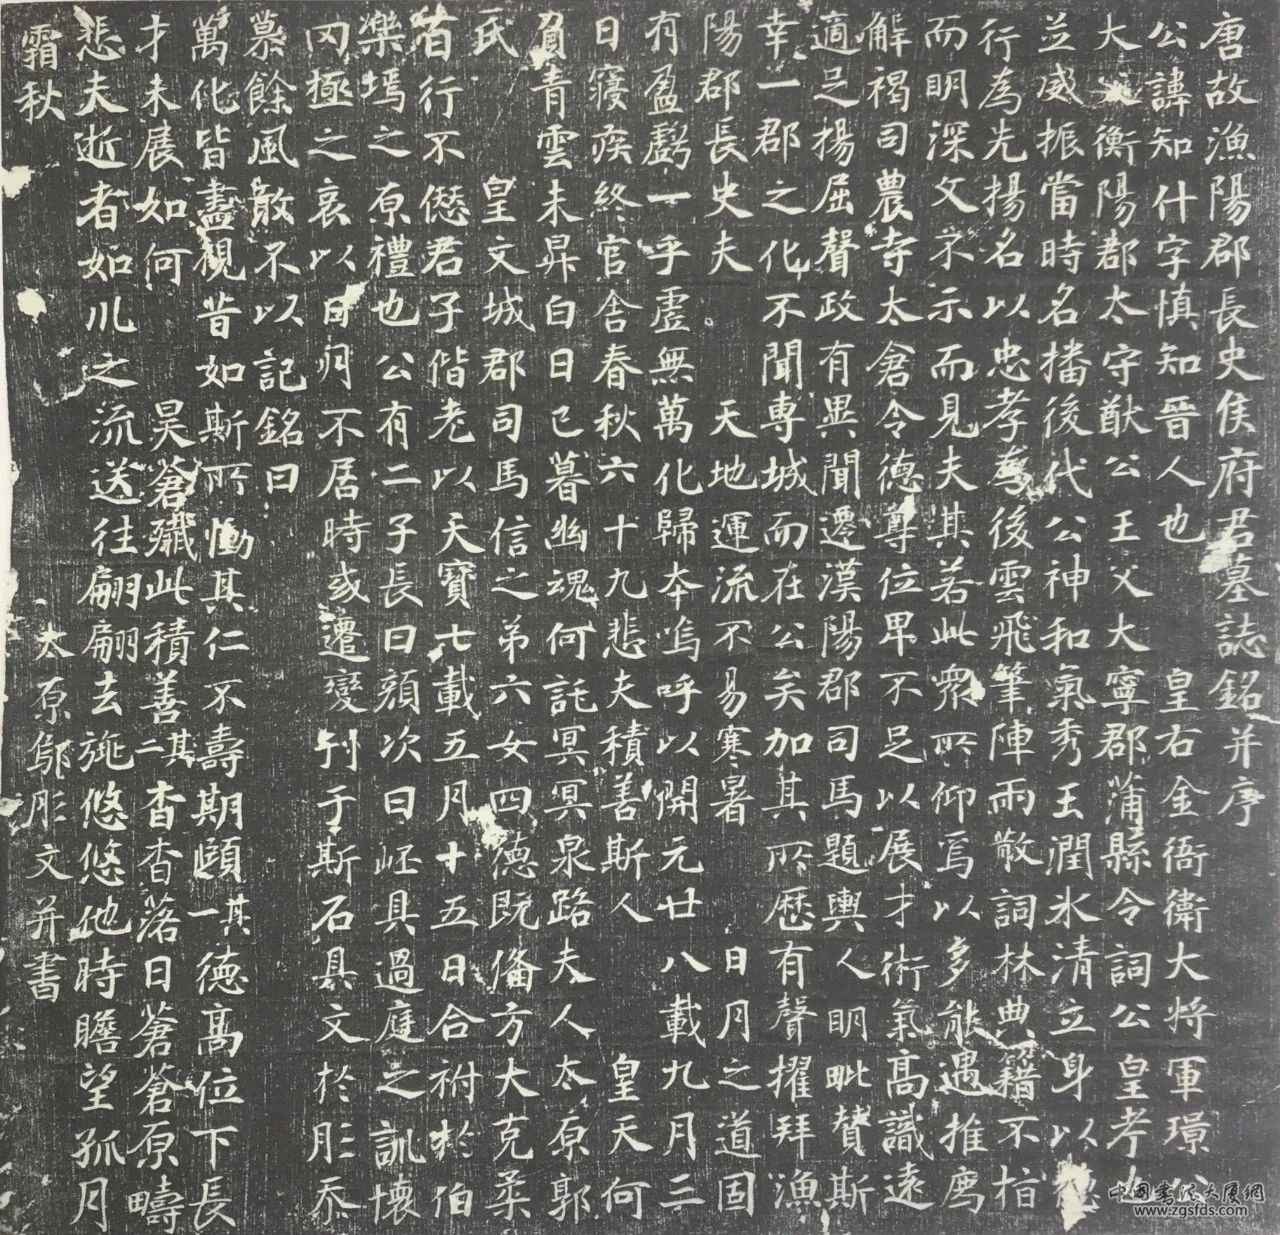 唐故漁陽郡長史侯府君墓誌銘并序
公諱知什字慎知晉人也 皇右金衙衛大将軍璟
大父衡陽郡太守猷公王父大寧郡蒲縣令詞公皇考
並威振當時名播後代公神和氣秀玉潤氷清立身以德
行為先揚名以忠孝為後雲飛筆陣雨散詞林典籍不
而明深文不示而見夫其若此衆所仰焉以多能遇推薦
解褐司農寺太倉令德尊位卑不足以展才術氣髙識遠
適足揚屈聲政有異聞遷漢陽郡司馬題輿人明毗賛斯
幸一郡之化不聞専城而在公矣加其所歷有聲擢拜漁
陽郡長史夫 天地運流不易寒暑 日月之道固
有盈虧一乎虛無萬化歸夲嗚呼以開元廿八載九月二
日寢疾終官舎春秋六十九悲夫積善斯人 皇天何
負青雲未昇白日已暮幽魂何託冥冥泉路夫人太原郭
氏 皇文城郡司馬信之弟六女四德既俻方大克柔
昔行不僁君子偕老以天寳七載五月十五日合祔於伯
樂塢之原禮也公有二子長曰顔次曰岯具過庭之訓懷
罔極之哀以日月不居時或遷變刊于斯石具文於彤忝
慕餘風敢不以記銘曰
萬化皆盡視昔如斯所慟其仁不壽期頤其一德髙位下長
才未展如何 昊蒼殲此積善其二杳杳落日蒼蒼原疇
悲夫逝者如川之流送往翩翩去旐悠悠他時瞻望孤月
霜秋 太原鄔彤文并書
中国書法大展網
www.zgsfds.com